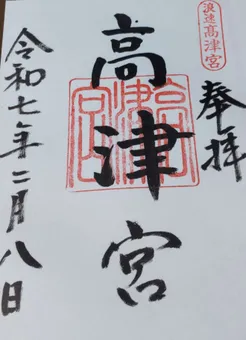 浪速高津宮
奉拝
高津宮
高津宮印
令和七年二月八日